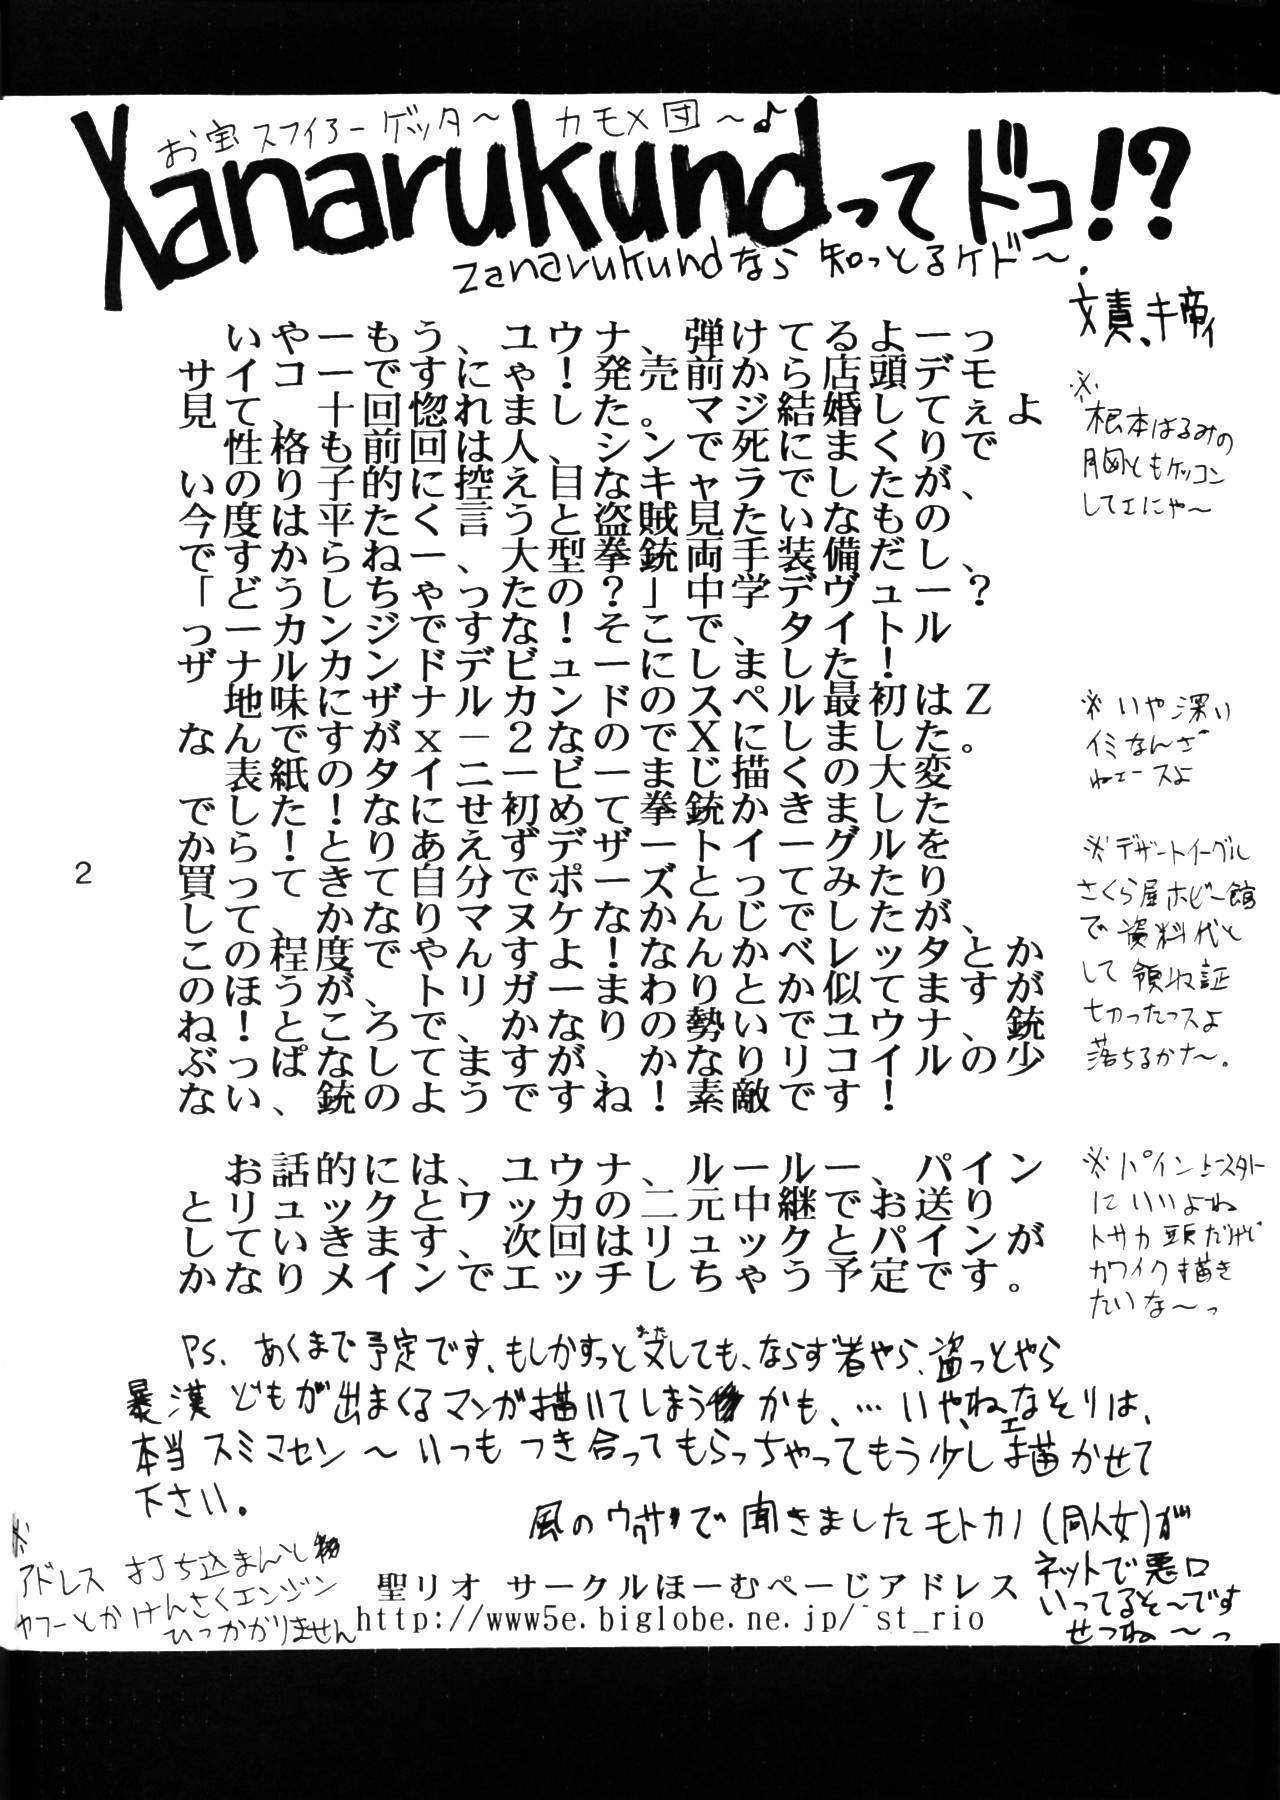 お宝スフィアーゲッタ～ カモメ団～♪
Xanarukundってドコ!?
zanarukundなら知っとるケド～.
文責、キ帝イ
いやーもう、ユウナ、弾けてるよーっ
サイコーーですにゃ！発売前から店頭デモ
見て、十回惚れました。マジ結婚してぇよ
性格も前回は人、シンで死にまくりで
いのり子的に控え目なキャラでしたが、
今度は平たく言うと盗賊見たいなもの
ですからねー、大型拳銃両手装備だし、
「どうしちゃったの？」中学デヴュー？
っーカンジですな！そこで、タイトル
ザナルカンドデビューにしました！
地味にザナルカンドのスペル最初はＺ
なんですがｘ－２なのでＸにしました。
表紙のタイニービーまじ描くの大変
でした！なにせ初めて拳銃かきました
から！とりあえずデザートイーグルを
買って、きて自分でポーズとってみたり
してかなりマヌケなかんじでしたが、
この程度でやんすよ！なんかべレッタとか
のほうが、トリガーまわりとか似てますが
ね！ところで、かなりの勢いでユウナ、銃
ぶっぱなしてますが、かなりリコイルの少
ない、銃のようですね！素敵です！
お話的には、ユウナ、ルールー、パイン
とリュックと、ワッカの二元中継でお送り
していきます、次回はリュックとパインが
かなりメインでエッチしちゃう予定です。
※
根本はるみの
胸ともケッコン
してェにゃ～
※いや深い
イミなんざ
ねェースよ
※デザートイーグル
さくら屋ホビー館
で資料代と
して領収証
もかったっスよ
落ちるかナ～。
※パイン上にスタト
にいいよね
トサカ頭だけど
カワイク描き
たいな～っ
2
PS. あくまで予定です、もしかすっと又しても、ならず者やら、盗っとやら
暴漢どもが出まくるマンガ描いてしまうかも、…いや、ねェなそりは、
本当スミマセン～いつもつき合ってもらっちゃってもう少し描かせて
下さい。
風のウワサで聞きましたモトカノ(同人女)が
ネットで悪口
いってるそ～です
せつね～っ
※
アドレス打ち込まんと
ヤフーとかけんさくエンジン
ひっかかりません
聖リオ サークルほーむぺーじアドレス
http://www5e.biglobe.ne.jp/~st_rio